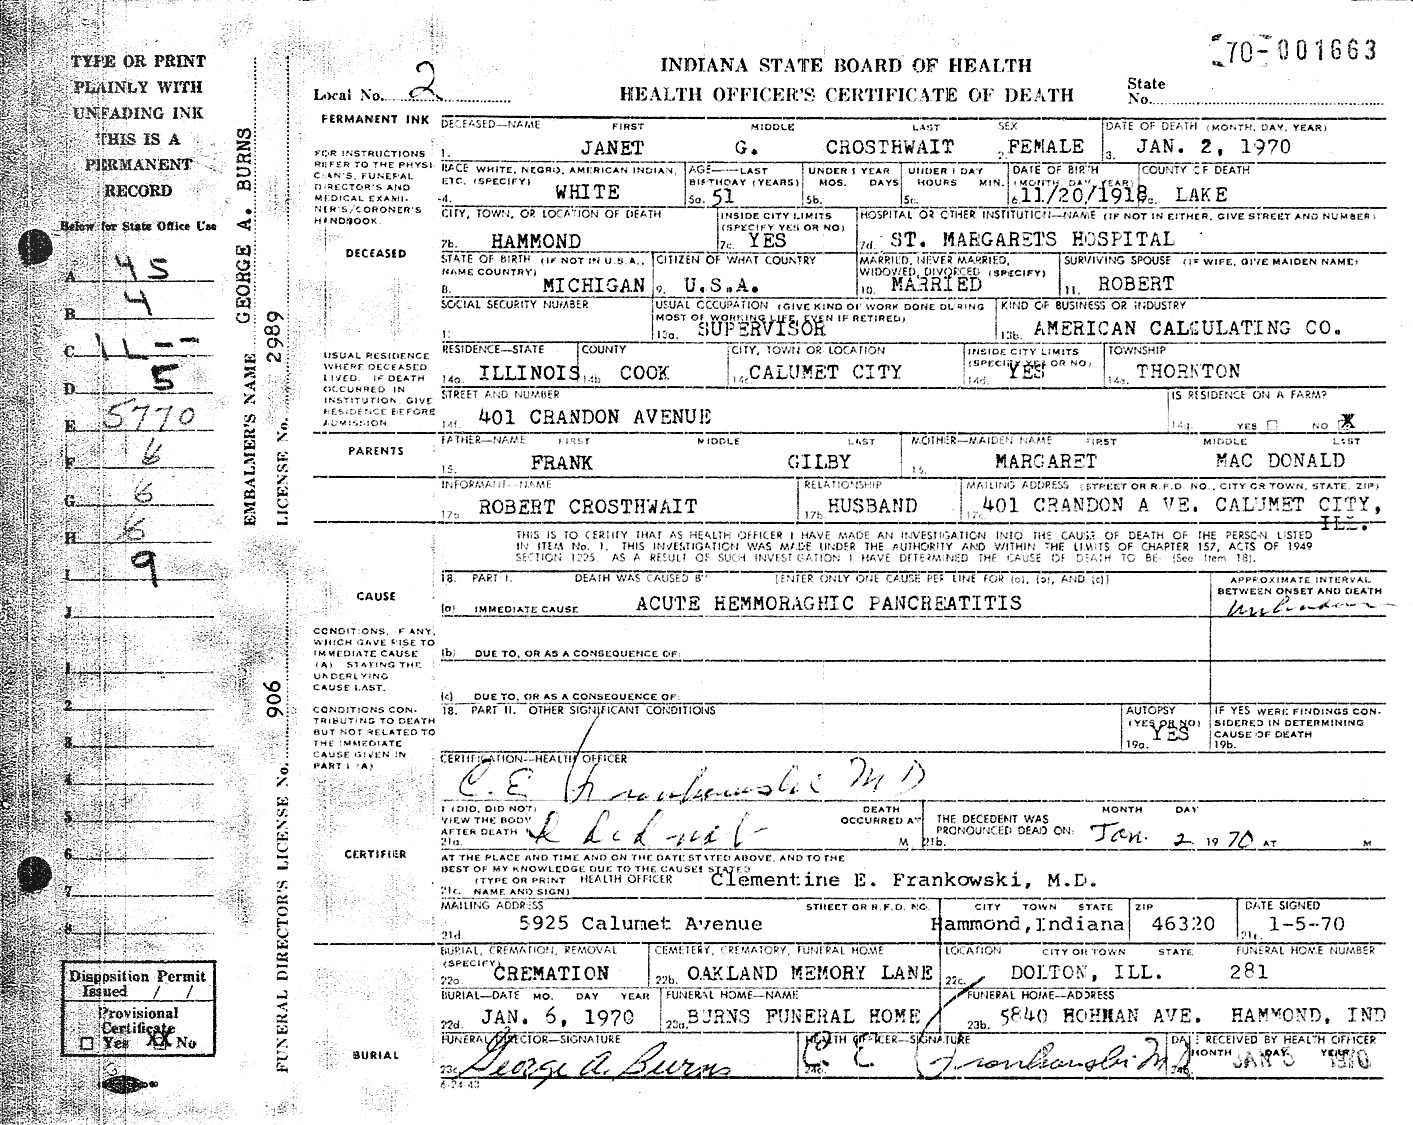 70-001663
INDIANA STATE BOARD OF HEALTH
HEALTH OFFICER'S CERTIFICATE OF DEATH
Local No. 2
State No.
TYPE OR PRINT
PLAINLY WITH
UNFADING INK
THIS IS A
PERMANENT
RECORD
Below for State Office Use
A 45
B 4
C
D 5
E 5770
F 6
G 6
H 6
I 9
J
1
2
3
4
5
6
7
8
Disposition Permit
Issued / /
Provisional
Certificate
Yes XX No
EMBALMER'S NAME GEORGE A. BURNS
LICENSE No. 2989
FUNERAL DIRECTOR'S LICENSE No. 906
PERMANENT INK
FOR INSTRUCTIONS
REFER TO THE PHYSI
CIAN'S, FUNERAL
DIRECTOR'S AND
MEDICAL EXAMI-
NER'S/CORONER'S
HANDBOOK.
DECEASED—NAME FIRST MIDDLE LAST
1. JANET G. CROSTHWAIT
SEX
2. FEMALE
DATE OF DEATH (MONTH, DAY, YEAR)
3. JAN. 2, 1970
RACE WHITE, NEGRO, AMERICAN INDIAN,
ETC. (SPECIFY)
4. WHITE
AGE—LAST
BIRTHDAY (YEARS)
5a. 51
UNDER 1 YEAR
MOS. DAYS
5b.
UNDER 1 DAY
HOURS MIN.
5c.
DATE OF BIRTH
(MONTH, DAY, YEAR)
6. 11/20/1918
COUNTY OF DEATH
LAKE
DECEASED
CITY, TOWN, OR LOCATION OF DEATH
7b. HAMMOND
INSIDE CITY LIMITS
(SPECIFY YES OR NO)
7c. YES
HOSPITAL OR OTHER INSTITUTION—NAME (IF NOT IN EITHER, GIVE STREET AND NUMBER)
7d. ST. MARGARETS HOSPITAL
STATE OF BIRTH (IF NOT IN U.S.A.,
NAME COUNTRY)
8. MICHIGAN
CITIZEN OF WHAT COUNTRY
9. U.S.A.
MARRIED, NEVER MARRIED,
WIDOWED, DIVORCED (SPECIFY)
10. MARRIED
SURVIVING SPOUSE (IF WIFE, GIVE MAIDEN NAME)
11. ROBERT
SOCIAL SECURITY NUMBER
USUAL OCCUPATION (GIVE KIND OF WORK DONE DURING
MOST OF WORKING LIFE, EVEN IF RETIRED)
13a. SUPERVISOR
KIND OF BUSINESS OR INDUSTRY
13b. AMERICAN CALCULATING CO.
USUAL RESIDENCE
WHERE DECEASED
LIVED. IF DEATH
OCCURRED IN
INSTITUTION, GIVE
RESIDENCE BEFORE
ADMISSION.
RESIDENCE—STATE
14a. ILLINOIS
COUNTY
14b COOK
CITY, TOWN OR LOCATION
14c CALUMET CITY
INSIDE CITY LIMITS
(SPECIFY YES OR NO)
14d. YES
TOWNSHIP
14e. THORNTON
STREET AND NUMBER
14f. 401 CRANDON AVENUE
IS RESIDENCE ON A FARM?
14g. YES NO X
PARENTS
FATHER—NAME FIRST MIDDLE LAST
15. FRANK GILBY
MOTHER—MAIDEN NAME FIRST MIDDLE LAST
MARGARET MAC DONALD
INFORMANT—NAME
17a. ROBERT CROSTHWAIT
RELATIONSHIP
17b HUSBAND
MAILING ADDRESS (STREET OR R.F.D. NO., CITY OR TOWN, STATE, ZIP)
17c 401 CRANDON A VE. CALUMET CITY,
ILL.
THIS IS TO CERTIFY THAT AS HEALTH OFFICER I HAVE MADE AN INVESTIGATION INTO THE CAUSE OF DEATH OF THE PERSON LISTED
IN ITEM No. 1. THIS INVESTIGATION WAS MADE UNDER THE AUTHORITY AND WITHIN THE LIMITS OF CHAPTER 157, ACTS OF 1949
SECTION 1225. AS A RESULT OF SUCH INVESTIGATION I HAVE DETERMINED THE CAUSE OF DEATH TO BE: (See Item 18).
CAUSE
18. PART I. DEATH WAS CAUSED BY (ENTER ONLY ONE CAUSE PER LINE FOR (a), (b), AND (c))
APPROXIMATE INTERVAL
BETWEEN ONSET AND DEATH
(a) IMMEDIATE CAUSE ACUTE HEMMORAGHIC PANCREATITIS
CONDITIONS, IF ANY,
WHICH GAVE RISE TO
IMMEDIATE CAUSE
(A) STATING THE
UNDERLYING
CAUSE LAST.
(b) DUE TO, OR AS A CONSEQUENCE OF:
(c) DUE TO, OR AS A CONSEQUENCE OF:
CONDITIONS CON-
TRIBUTING TO DEATH
BUT NOT RELATED TO
THE IMMEDIATE
CAUSE GIVEN IN
PART I (A)
18. PART II. OTHER SIGNIFICANT CONDITIONS
AUTOPSY
(YES OR NO)
19a. YES
IF YES WERE FINDINGS CON-
SIDERED IN DETERMINING
CAUSE OF DEATH
19b.
CERTIFICATION—HEALTH OFFICER
C. E. Frankowski MD
CERTIFIER
I (DID, DID NOT)
VIEW THE BODY
AFTER DEATH
21a. I did not
DEATH
OCCURRED AT
M
THE DECEDENT WAS
PRONOUNCED DEAD ON:
MONTH DAY
21b. Jan. 2 1970 AT M
AT THE PLACE AND TIME AND ON THE DATE STATED ABOVE, AND TO THE
BEST OF MY KNOWLEDGE DUE TO THE CAUSES STATED
(TYPE OR PRINT HEALTH OFFICER
21c. NAME AND SIGN)
Clementine E. Frankowski, M.D.
MAILING ADDRESS STREET OR R.F.D. NO. CITY TOWN STATE ZIP
21d. 5925 Calumet Avenue Hammond, Indiana 46320
DATE SIGNED
21e. 1-5-70
BURIAL
BURIAL, CREMATION, REMOVAL
(SPECIFY)
22a. CREMATION
CEMETERY, CREMATORY, FUNERAL HOME
22b. OAKLAND MEMORY LANE
LOCATION CITY OR TOWN STATE
22c. DOLTON, ILL.
FUNERAL HOME NUMBER
281
BURIAL—DATE MO. DAY YEAR
22d. JAN. 6, 1970
FUNERAL HOME—NAME
23a. BURNS FUNERAL HOME
FUNERAL HOME—ADDRESS
23b. 5840 HOHMAN AVE. HAMMOND, IND
FUNERAL DIRECTOR—SIGNATURE
23c. George A. Burns
HEALTH OFFICER—SIGNATURE
24a. C E Frankowski MD
DATE RECEIVED BY HEALTH OFFICER
MONTH DAY YEAR
24b. JAN 5 1970
6-24-43